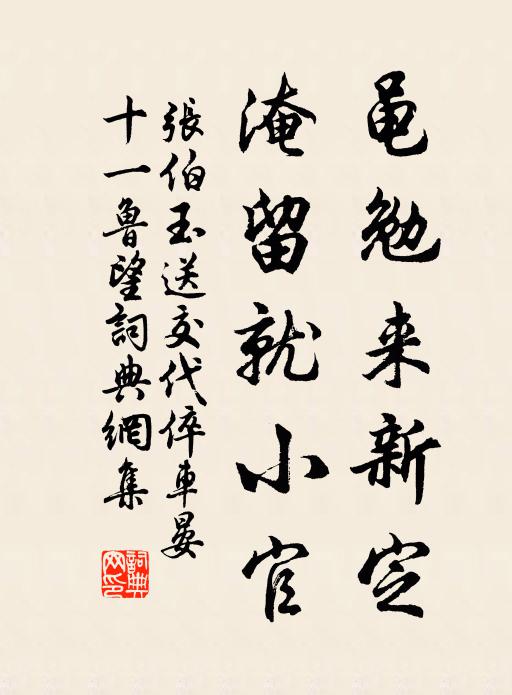 黽勉来新定
淹留就小官
張伯玉送交代倅車晏
十一魯望詞典網集
詞典
网印